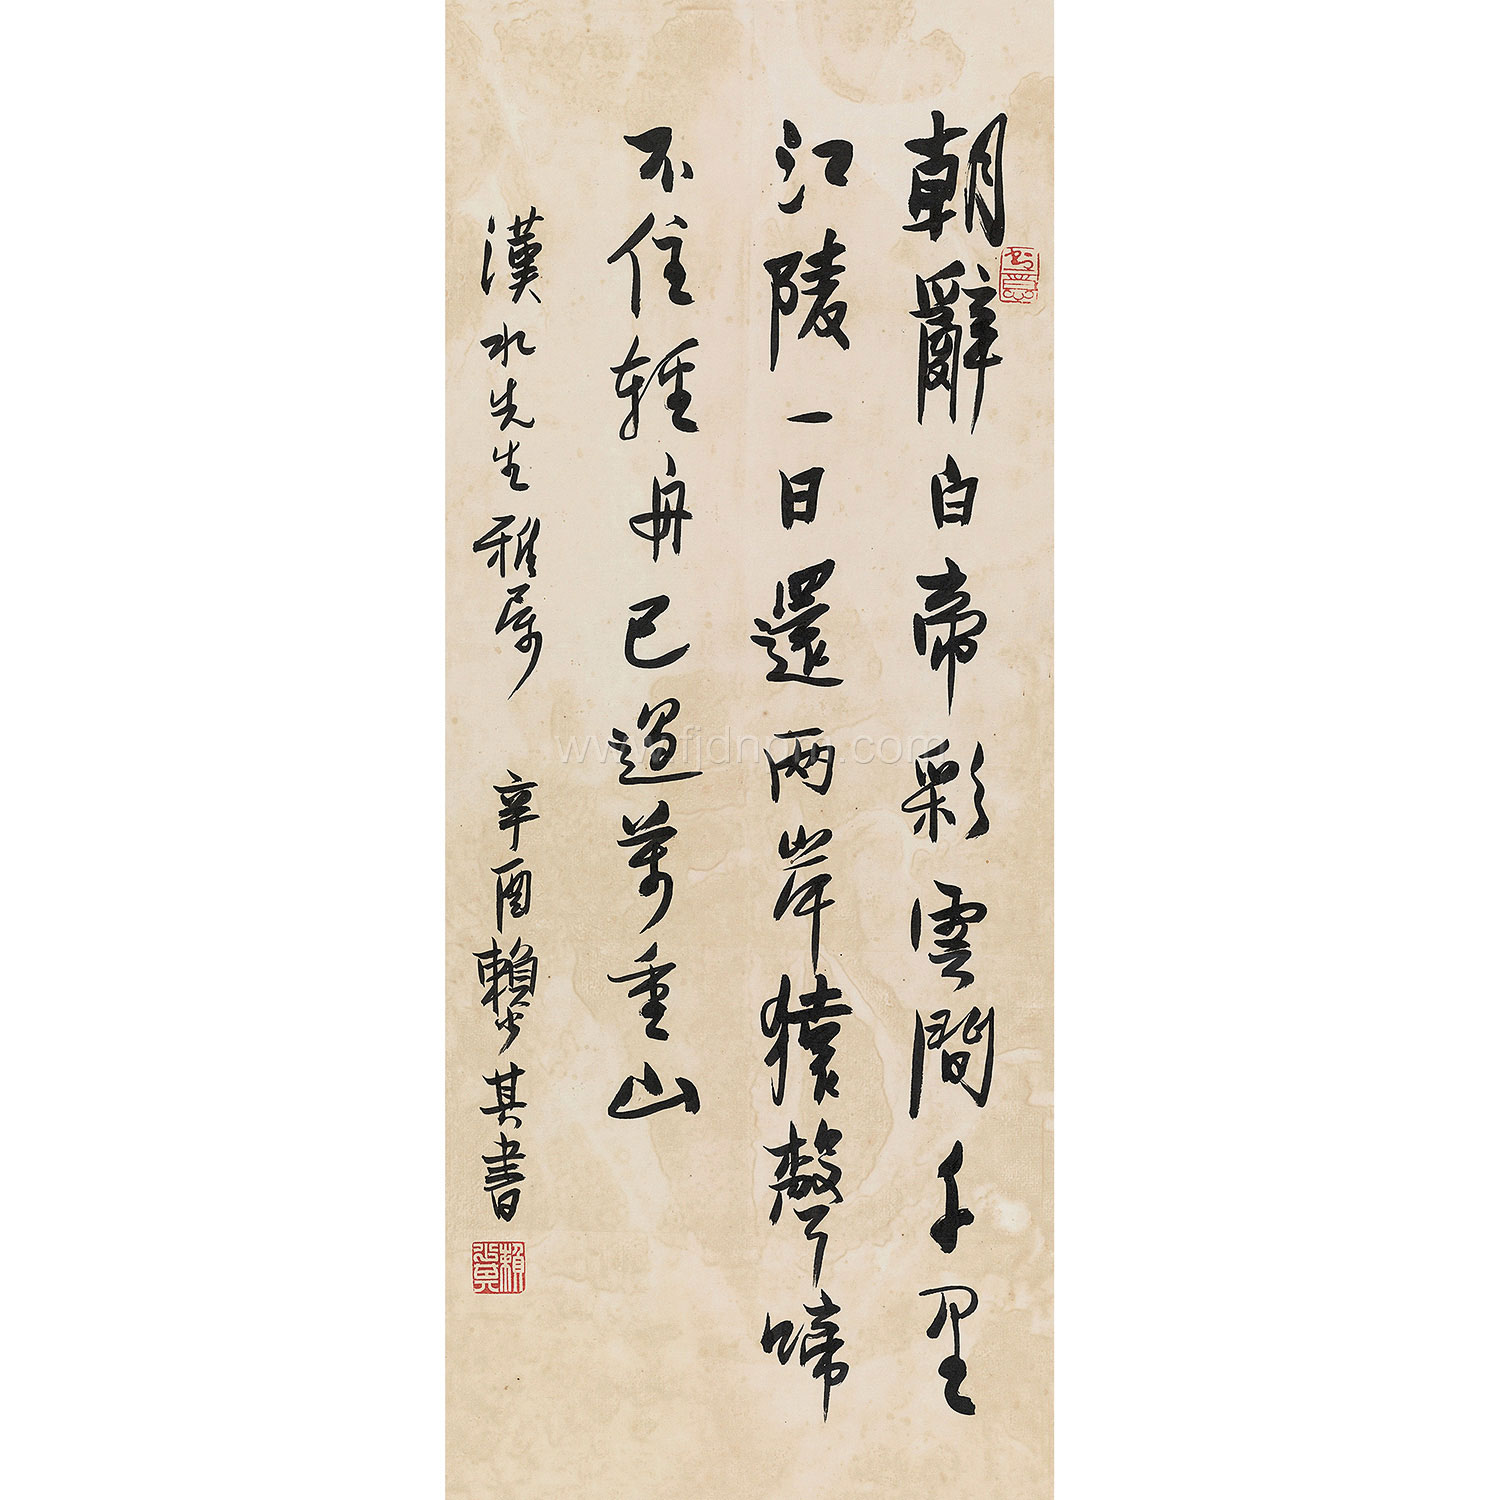 朝辭白帝彩雲間千里
江陵一日還兩岸猿聲啼
不住輕舟已過萬重山
漢水先生雅屬 辛酉賴少其書